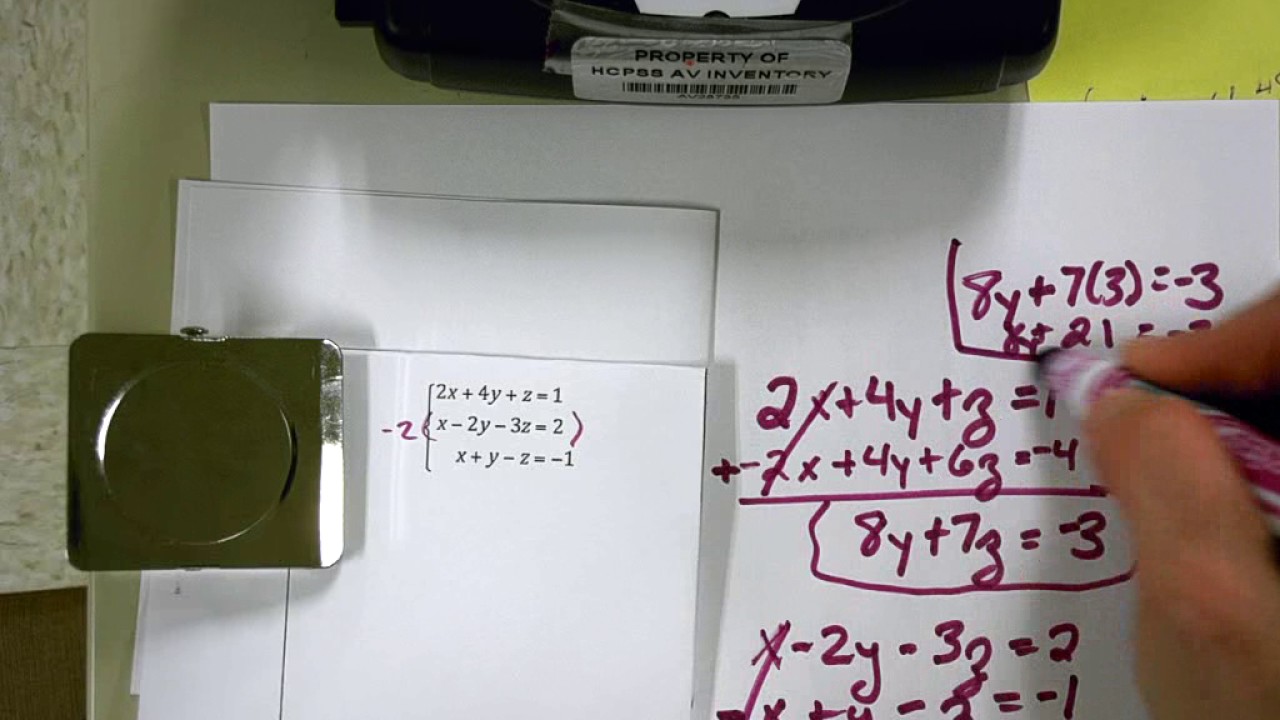 PROPERTY OF
HCPSS AV INVENTORY
2x + 4y + z = 1
-2( x − 2y − 3z = 2 )
x + y − z = −1
8y+7(3)=-3
2x+4y+z=1
+-2x+4y+6z=-4
8y+7z=-3
x-2y-3z=2